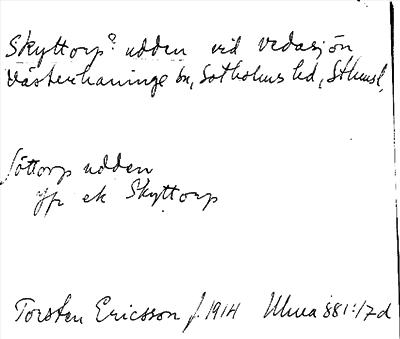 Skyttorps udden vid Vedasjön
Västerhaninge sn, Sotholms hd, Sthmsl,
Söttorp udden
jfr ek Skyttorp
Torsten Ericsson f. 1914 881:17d